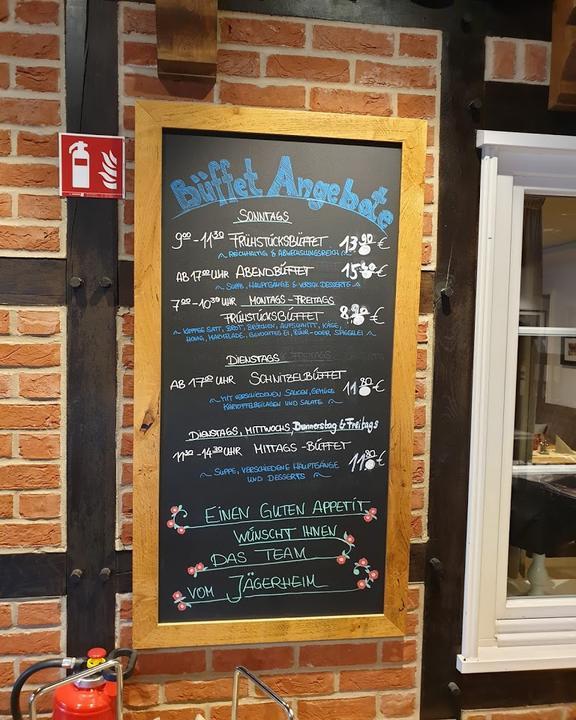 Büffet Angebote
SONNTAGS
9⁰⁰ - 11³⁰ FRÜHSTÜCKSBÜFFET 13,90€
~ REICHHALTIG & ABWECHSLUNGSREICH ~
AB 17⁰⁰ UHR ABENDBÜFFET 15,90€
~ SUPPE, HAUPTGÄNGE & VERSCH. DESSERTS ~
7⁰⁰ - 10³⁰ UHR MONTAGS - FREITAGS
FRÜHSTÜCKSBÜFFET 8,90€
~ KAFFEE SATT, BROT, BRÖTCHEN, AUFSCHNITT, KÄSE,
HONIG, MARMELADE, GEKOCHTES EI, RÜHR- ODER SPIEGELEI ~
DIENSTAGS
AB 17⁰⁰ UHR SCHNITZELBÜFFET 11,80€
~ MIT VERSCHIEDENEN SAUCEN, GEMÜSE,
KARTOFFELBEILAGEN UND SALATE ~
DIENSTAGS, MITTWOCHS, Donnerstag & Freitags
11³⁰ - 14⁰⁰ UHR MITTAGS - BÜFFET 11,80€
~ SUPPE, VERSCHIEDENE HAUPTGÄNGE
UND DESSERTS ~
EINEN GUTEN APPETIT
WÜNSCHT IHNEN
DAS TEAM
VOM JÄGERHEIM